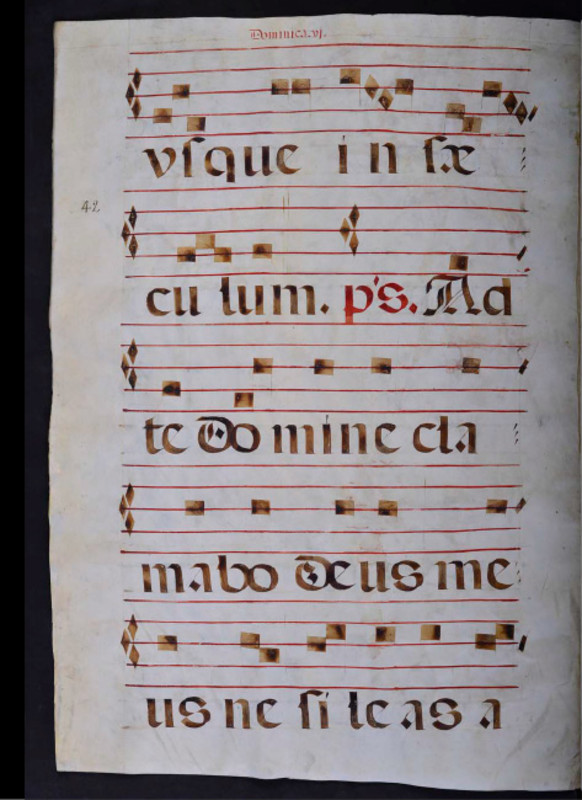 Dominica.vj.
vſque in ſæ
42
cu lum. p's. Ad
te Do mine cla
mabo Deus me
us ne ſi le as a